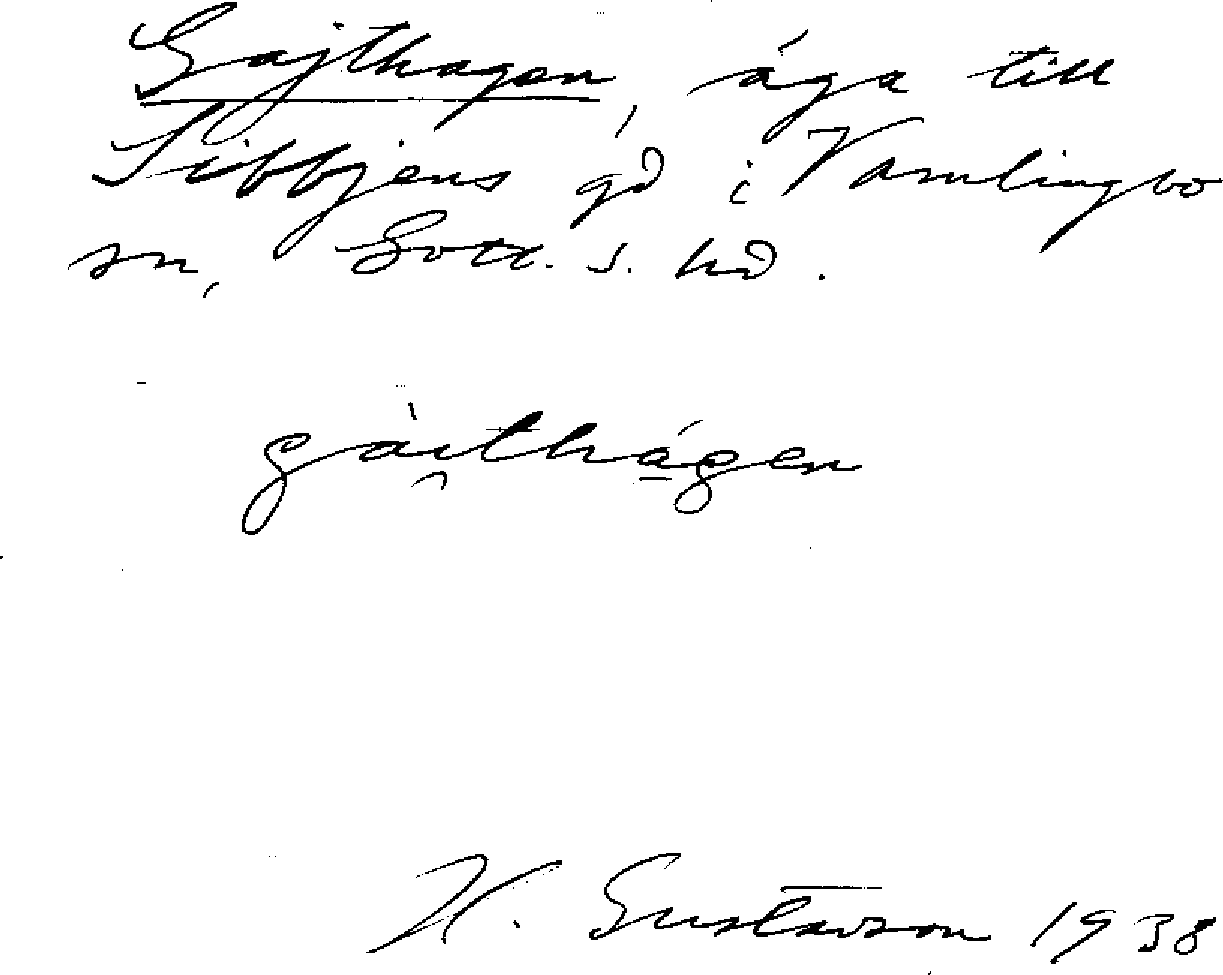 Gajthagen, äga till
Sibbjens gd i Vamlingbo
sn, Gotl. s. hd.
gàithágen
H. Gustavson 1938